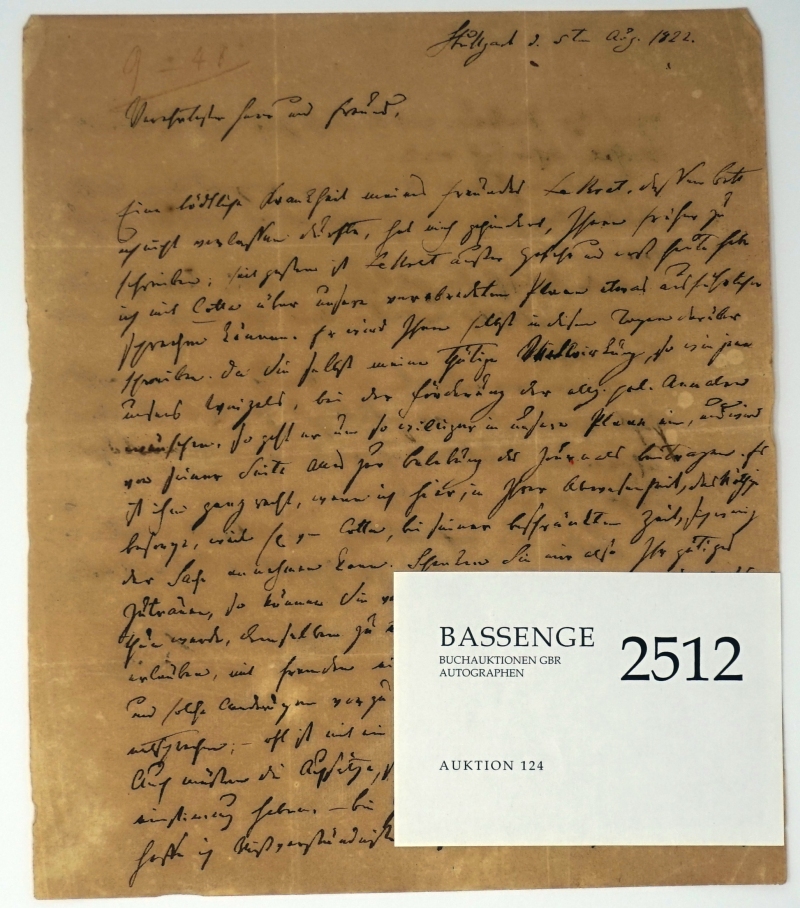 Stuttgart d. 5ten Aug. 1822.
9 = 48
Verehrtester Herr und Freund,
Eine tödtliche Krankheit meines Freundes LeBret, dess Bett
ich nicht verlassen durfte, hat mich gehindert, Ihnen früher zu
schreiben; seit gestern ist LeBret außer Gefahr und erst heute habe
ich mit Cotta über unsere verabredeten Plane etwas ausführlicher
sprechen können. Er wird Ihnen selbst in diesen Tagen darüber
schreiben. Da Sie selbst meine thätige Mitwirkung, so wie jene
unsers Weigels, bei der Förderung der allg. pol. Annalen
wünschen, so geht er um so williger in unsere Plane ein, und wird
von seiner Seite alles zur Belebung des Journals beitragen. Es
ist ihm ganz recht, wenn ich hier, in Ihrer Abwesenheit, das Nöthige
besorge, weil H. v. Cotta, bei seiner beschränkten Zeit, sich wenig
der Sache annehmen kann. Schenken Sie mir also Ihr gütiges
Zutrauen, so können Sie
thun werde, demselben zu
erlauben, mit fremden
und solche Aenderungen
entsprechen; – oft ist mit
Auch müssen die Aufsätze,
haben. – bei
hoffe ich Mißverständnisse
BASSENGE
BUCHAUKTIONEN GBR
AUTOGRAPHEN
2512
AUKTION 124